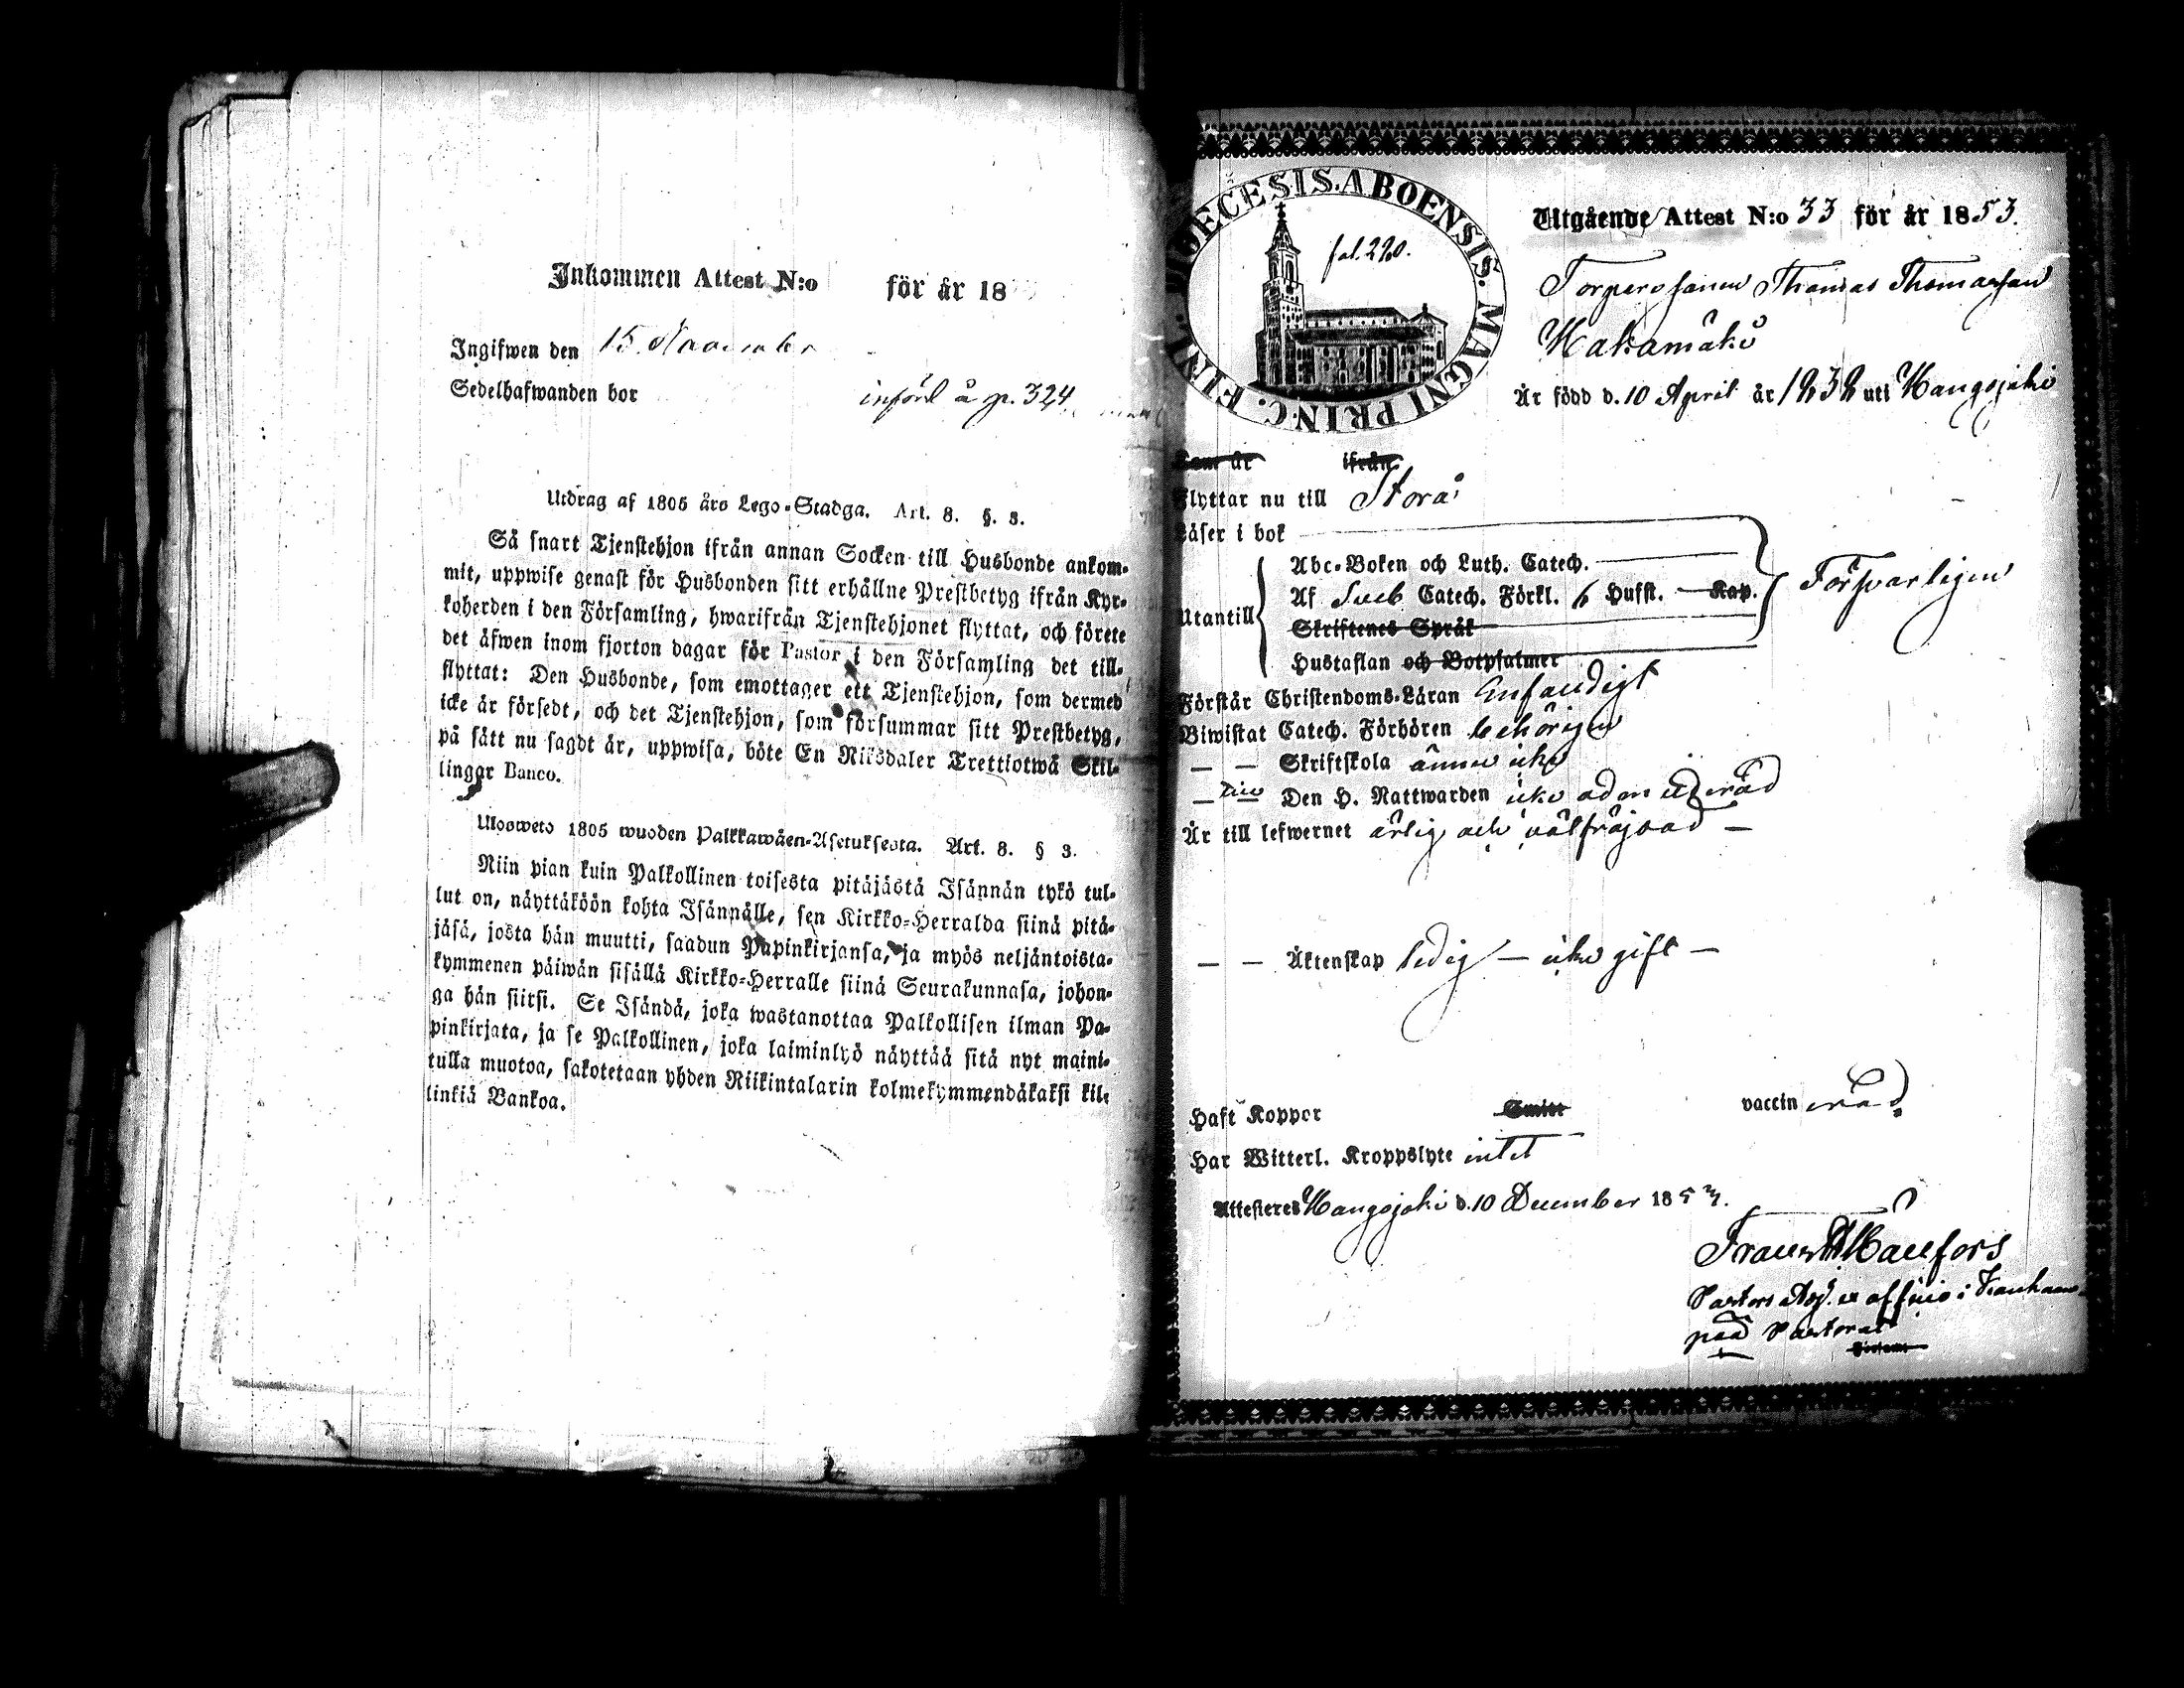 Inkommen Attest N:o för år 18
Ingifwen den 15. November
Sedelhafwanden bor införd å p. 324
Utdrag af 1805 års Lego-Stadga. Art. 8. §. 3.
Så snart Tjenstehjon ifrån annan Socken till Husbonde ankom-
mit, uppwise genast för Husbonden sitt erhållne Prestbetyg ifrån Kyr-
koherden i den Församling, hwarifrån Tjenstehjonet flyttat, och förete
det äfwen inom fjorton dagar för Pastor i den Församling det till-
flyttat: Den Husbonde, som emottager ett Tjenstehjon, som dermed
icke är försedt, och det Tjenstehjon, som försummar sitt Prestbetyg,
på sätt nu sagdt är, uppwisa, böte En Riksdaler Trettiotwå Skil-
lingar Banco.
Uloswets 1805 wuoden Palkkawäen-Asetuksesta. Art. 8. § 3.
Niin pian kuin Palkollinen toisesta pitäjästä Isännän tykö tul-
lut on, näyttäköön kohta Isännälle, sen Kirkko-Herralda siinä pitä-
jäsä, josta hän muutti, saadun Papinkirjansa, ja myös neljäntoista-
kymmenen päiwän sisällä Kirkko-Herralle siinä Seurakunnasa, johon-
ga hän siirsi. Se Isändä, joka wastanottaa Palkollisen ilman Pa-
pinkirjata, ja se Palkollinen, joka laiminlyö näyttää sitä nyt maini-
tulla muotoa, sakotetaan yhden Riikintalarin kolmekymmendäkaksi kil-
linkiä Bankoa.
DIŒCESIS. ABOENSIS. MAGNI PRINC. FINL.
fol. 290.
Utgående Attest N:o 33 för år 1853.
Thomas Thomasson
Hakamäki
Är född d. 10 April år 1838 uti Kangsjoki
Kom år ifrån
Flyttar nu till Storå
Läser i bok
Abc-Boken och Luth. Catech.
Utantill Af Sveb Catech. Förkl. 6 Hufst. — Kap. Försvarligen
Skriftenes Språk
Hustaflan och Botpsalmer
Förstår Christendoms-Läran Enfaldigt
Biwistat Catech. Förhören behörigen
— — Skriftskola ännu icke
— Den H. Nattwarden icke admitterad
Är till lefwernet ärlig och välfräjdad —
— — Äktenskap ledig — icke gift —
Haft Koppor Smitt vaccinerad.
Har Witterl. Kroppslyte intet
Attesteres Kangsjoki d. 10 December 1853.
Pastors Adj. ex officio i Kauhajo-